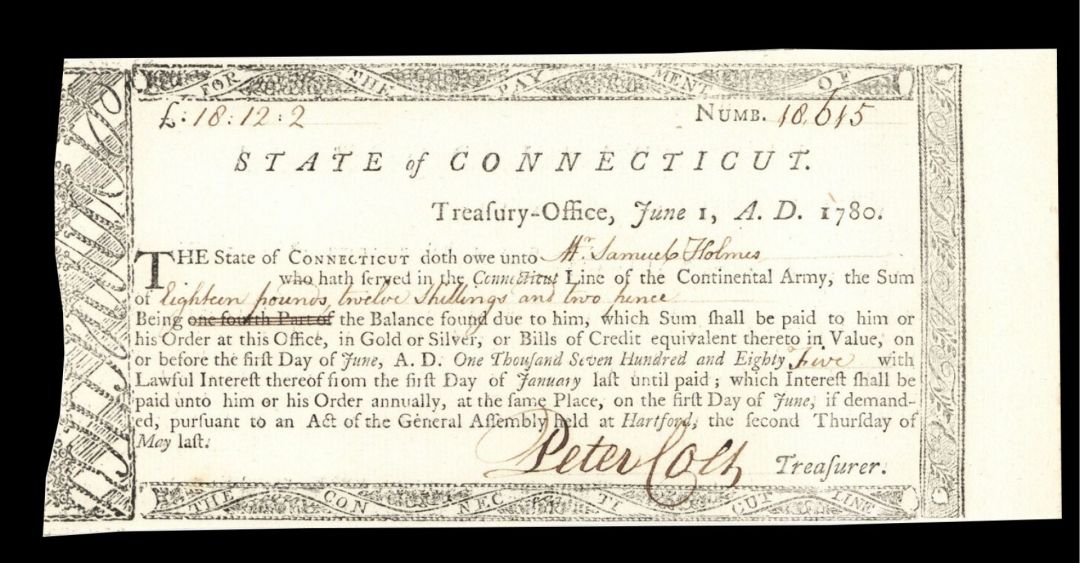 FOR THE PAYMENT OF
£:18:12:2 NUMB. 18,615
STATE of CONNECTICUT.
Treaſury-Office, June 1, A. D. 1780.
THE State of CONNECTICUT doth owe unto Mr. Samuel Holmes
who hath ſerved in the Connecticut Line of the Continental Army, the Sum
of Eighteen pounds, twelve Shillings and two pence
Being one fourth Part of the Balance found due to him, which Sum ſhall be paid to him or
his Order at this Office, in Gold or Silver, or Bills of Credit equivalent thereto in Value, on
or before the firſt Day of June, A. D. One Thouſand Seven Hundred and Eighty Five with
Lawful Intereſt thereof from the firſt Day of January laſt until paid; which Intereſt ſhall be
paid unto him or his Order annually, at the ſame Place, on the firſt Day of June, if demand-
ed, purſuant to an Act of the General Aſſembly held at Hartford, the ſecond Thurſday of
May laſt.
Peter Colt Treaſurer.
THE CONNECTICUT LINE